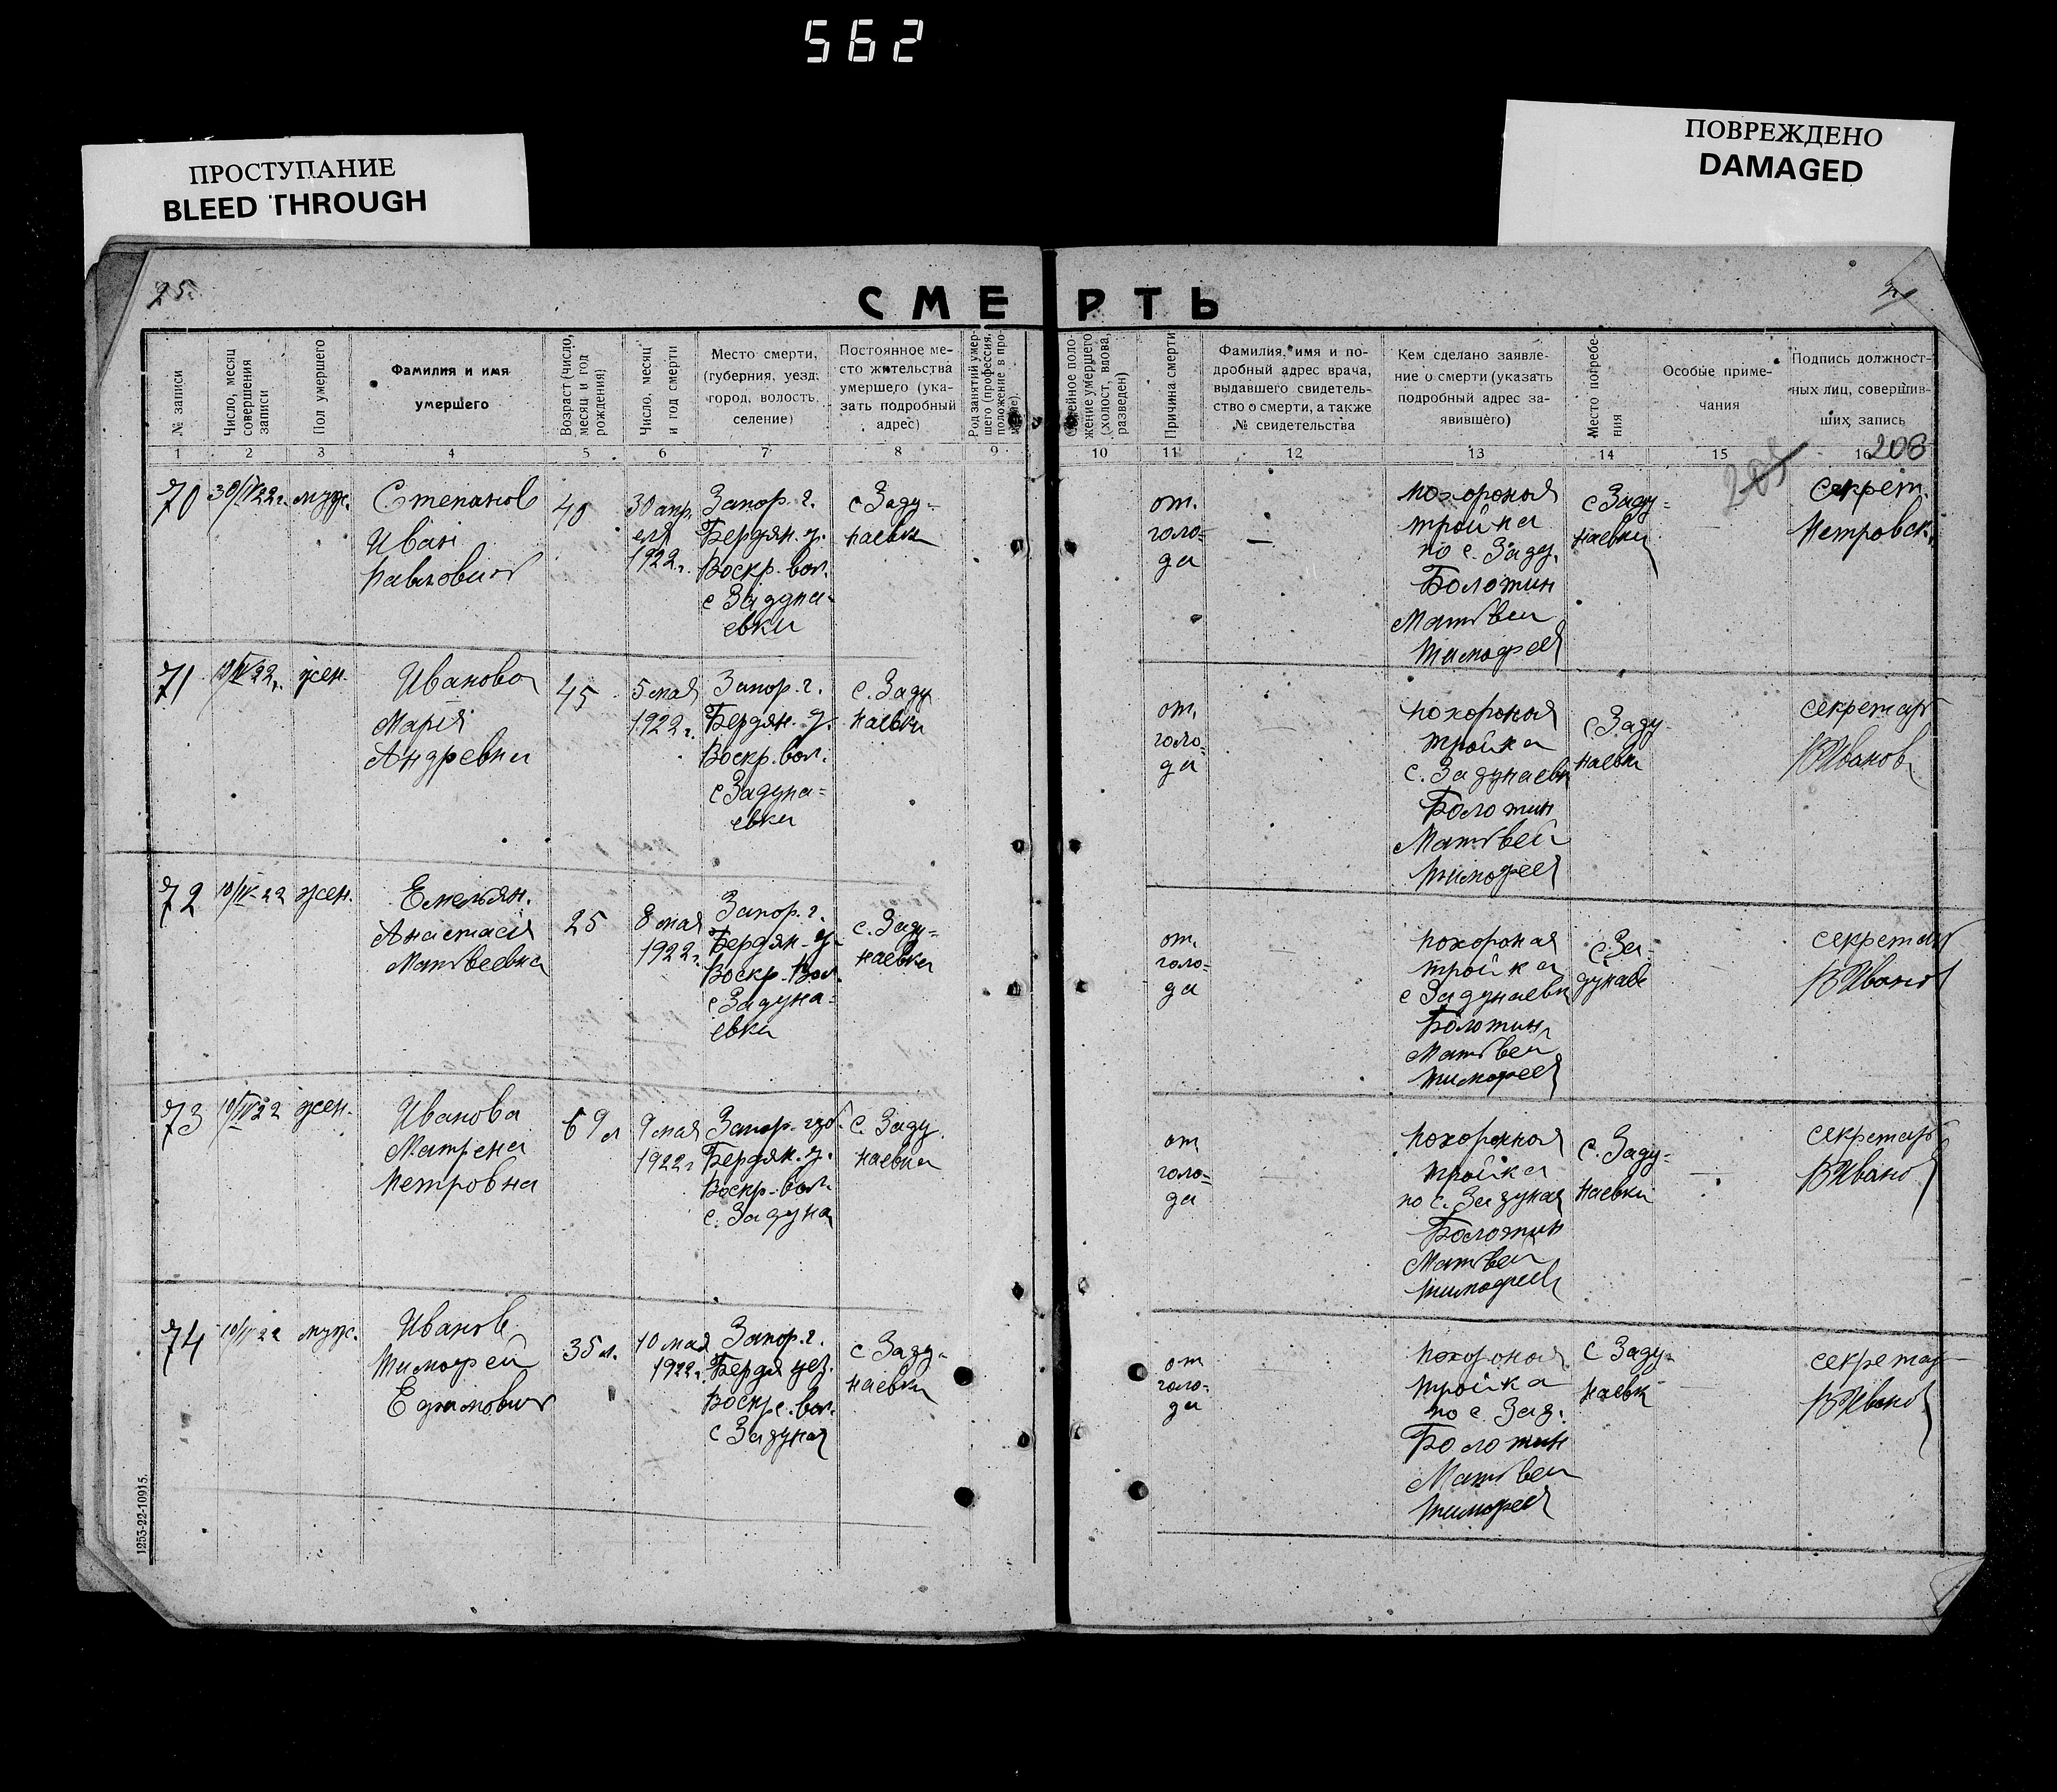 562
ПРОСТУПАНИЕ
BLEED THROUGH
ПОВРЕЖДЕНО
DAMAGED
25.
СМЕРТЬ
№ записи
Число, месяц совершения записи
Пол умершего
Фамилия и имя умершего
Возраст (число, месяц и год рождения)
Число, месяц и год смерти
Место смерти, (губерния, уезд, город, волость, селение)
Постоянное место жительства умершего (указать подробный адрес)
Род занятий умершего (профессия, положение в про-
Семейное положение умершего (холост, вдова, разведен)
Причина смерти
Фамилия, имя и подробный адрес врача, выдавшего свидетельство о смерти, а также № свидетельства
Кем сделано заявление о смерти (указать подробный адрес заявившего)
Место погребения
Особые примечания
Подпись должностных лиц, совершивших запись
1 2 3 4 5 6 7 8 9 10 11 12 13 14 15 16
208
205
70
30/IV 22 г.
муж.
Степанов
Иван
Павлович
40
30 апр
еля
1922 г.
Запор. г.
Бердян. у.
Воскр. вол.
с Задуна-
евки
с Заду-
наевк
от.
голо-
да
—
похороная
тройка
по с. Заду.
Болотин
Матвеи
Тимофее
с Заду-
наевки
секрет.
Петровск.
71
10/IV 22 г.
жен.
Иванова
Марія
Андревна
45
5 мая
1922 г.
Запор. г.
Бердян. у.
Воскр. вол.
с Задуна=
евки
с. Заду
наевки
от.
голо-
да
похороная
тройка
с. Задунаевк
Болотин
Матвей
Тимофее
с Заду-
наевки
секретар
ВИванов
72
10/IV-22
жен.
Емельян.
Анастасія
Матвеевна
25
8 мая
1922 г.
Запор. г.
Бердян. у-
Воскр. Вол
с Задуна-
евки
с. Заду=
наевки
от.
голо-
да
похороная
тройка
с Задунаевк
Болотин
Матвеи
Тимофее
с. За-
дунаев
секретар
ВИванов
73
10/IV 22
жен.
Иванова
Матрена
Петровна
69 л
9 мая
1922 г
Запор. губ.
Бердян. у.
Воскр. вол.
с. Задуна
с. Заду
наевки
от
голо=
да
похороная
тройка
по с. Задуная
Болотин
Матвеи
Тимофеев
с. Заду-
наевки
секретар
ВИванов
74
10/IV 22
муж.
Иванов
Тимофей
Ефимович
35 л.
10 мая
1922 г.
Запор. г.
Бердя уез.
Воскре. вол.
с Задуная
с Заду-
наевки
от
голо-
да
похороная
тройка
по с. Зад.
Болотин
Матвеи
Тимофее
с Заду-
наевк
секретар
ВИванов
1253-22-10915.